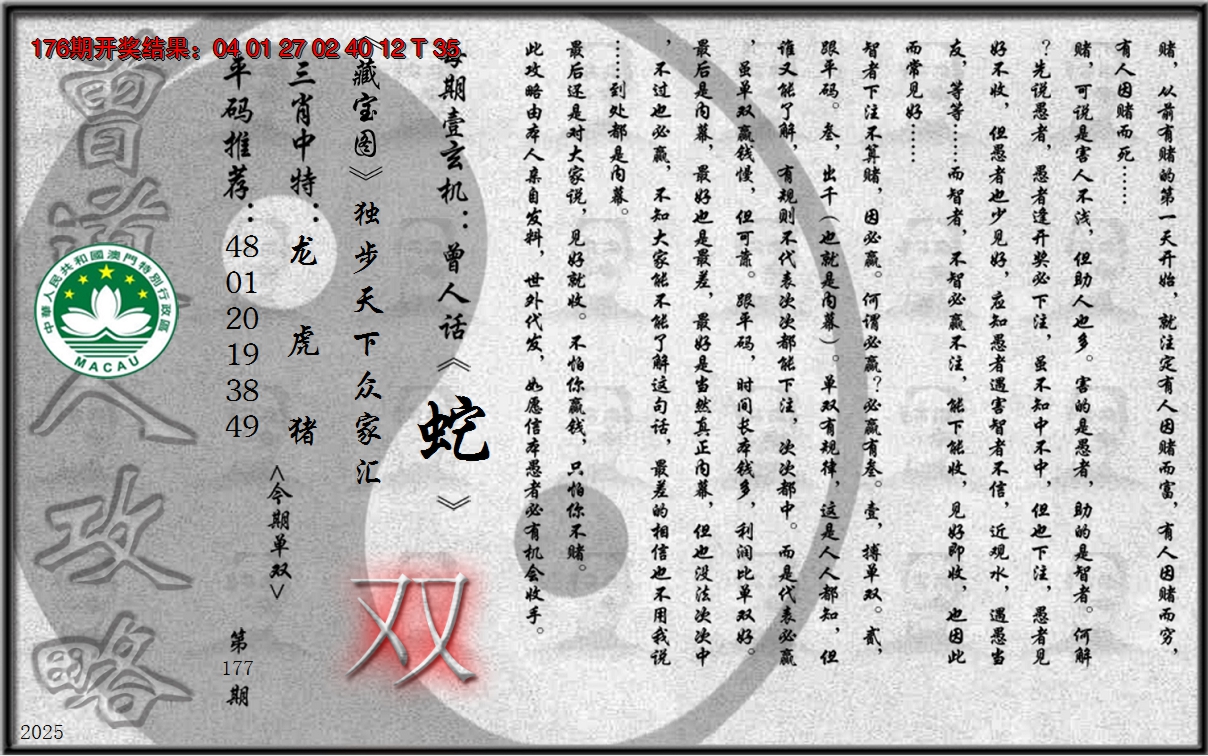 176期开奖结果：04 01 27 02 40 12 T 35
赌，从前有赌的第一天开始，就注定有人因赌而富，有人因赌而穷，
有人因赌而死……
赌，可说是害人不浅，但助人也多。害的是愚者，助的是智者。何解
？先说愚者，愚者逢开奖必下注，虽不知中不中，但也下注，愚者见
好不收，但愚者也少见好，应知愚者遇害智者不信，近观水，遇愚当
友，等等……而智者，不智必赢不注，能下能收，见好即收，也因此
而常见好……
智者下注不算赌，因必赢。何谓必赢？必赢有叁。壹，搏单双。贰，
跟平码。叁，出千（也就是内幕）。单双有规律，这是人人都知，但
谁又能了解，有规则不代表次次都能下注，次次都中。而是代表必赢
，虽单双赢钱慢，但可靠。跟平码，时间长本钱多，利润比单双好。
最后是内幕，最好也是最差，最好是当然真正内幕，但也没法次次中
，不过也必赢，不知大家能不能了解这句话，最差的相信也不用我说
……到处都是内幕。
最后还是对大家说，见好就收。不怕你赢钱，只怕你不赌。
此攻略由本人亲自发料，世外代发，如愿信本愚者必有机会收手。
每期壹玄机：曾人话《蛇》
《藏宝图》独步天下众家汇
双
三肖中特：龙 虎 猪
<今期单双>
平码推荐：48 01 20 19 38 49
第177期
曾道人攻略
中華人民共和國澳門特別行政區
MACAU
2025